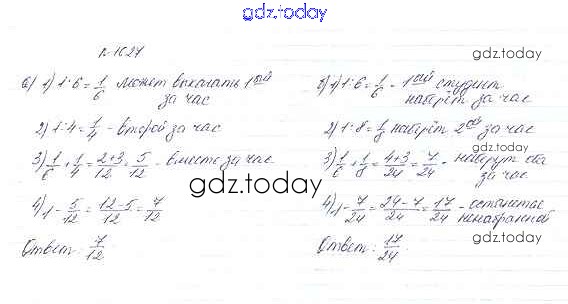 gdz.today
№1627
gdz.today
а) 1) 1:6 = 1/6 может выкопать 1ый
за час
2) 1:4 = 1/4 - второй за час
3) 1/6 + 1/4 = 2+3/12 = 5/12 - вместе за час
4) 1 - 5/12 = 12-5/12 = 7/12
Ответ: 7/12
gdz.today
1) 1:6 = 1/6 - 1ый студент
наберёт за час
gdz.today
2) 1:8 = 1/8 наберёт 2ой за час
3) 1/6 + 1/8 = 4+3/24 = 7/24 - наберут оба
за час
gdz.today
4) 1 - 7/24 = 24-7/24 = 17/24 - останется
ненабранной
Ответ: 17/24
gdz.today